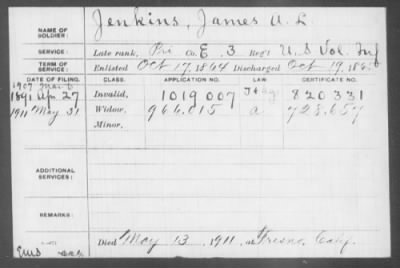 NAME OF SOLDIER: Jenkins, James A. L.
SERVICE: Late rank, Pri Co. E. 3 Reg't U.S Vol. Inf
TERM OF SERVICE: Enlisted Oct 17, 1864 Discharged Oct 19, 1865
DATE OF FILING. CLASS. APPLICATION NO. LAW CERTIFICATE NO.
1907 Mar 6
1891 Apr 27 Invalid, 1019007 820331
1911 May 31 Widow, 966.015 a 728.657
Minor.
ADDITIONAL SERVICES:
REMARKS:
Died May 13, 1911, at Fresno, Calif.